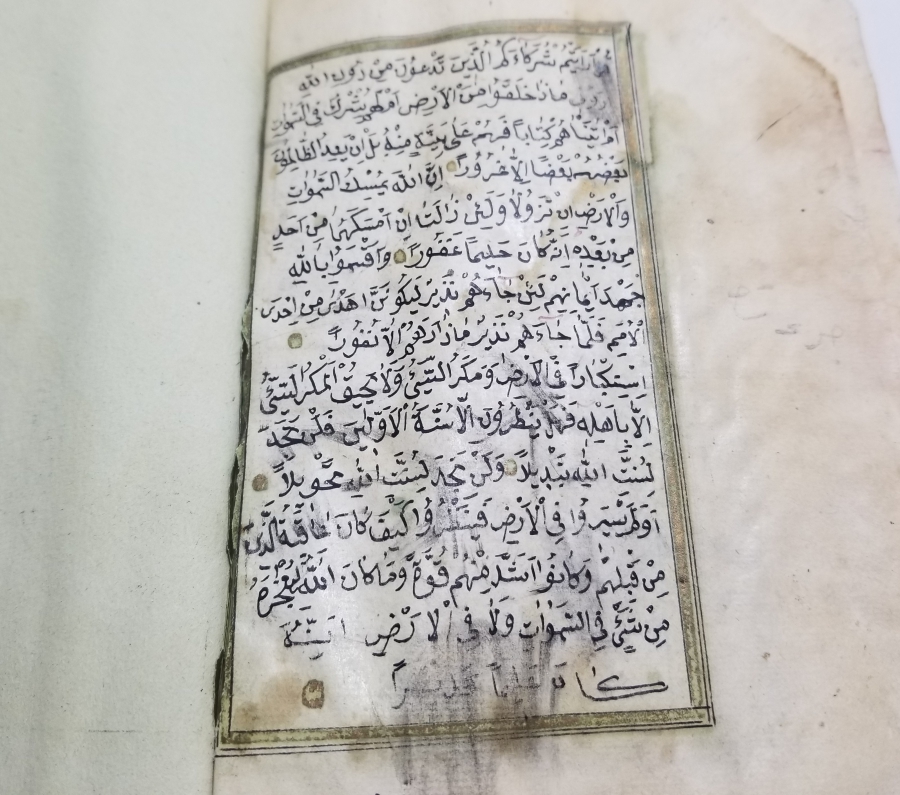 أرأيتم شركاءكم الذين تدعون من دون الله
ماذا خلقوا من الأرض أم لهم شرك في السموات
أم آتيناهم كتابا فهم على بينة منه بل إن يعد الظالمون
بعضهم بعضا إلا غرورا إن الله يمسك السموات
والأرض ان تزولا ولئن زالتا ان أمسكهما من أحد
من بعده إنه كان حليما غفورا وأقسموا بالله
جهد أيمانهم لئن جاءهم نذير ليكونن أهدى من إحدى
الأمم فلما جاءهم نذير ما زادهم إلا نفورا
استكبارا في الأرض ومكر السيئ ولا يحيق المكر السيئ
إلا بأهله فهل ينظرون إلا سنة الأولين فلن تجد
لسنت الله تبديلا ولن تجد لسنت الله تحويلا
أولم يسيروا في الأرض فينظروا كيف كان عاقبة الذين
من قبلهم وكانوا أشد منهم قوة وما كان الله ليعجزه
من شيء في السموات ولا في الأرض إنه
كان عليما قديرا